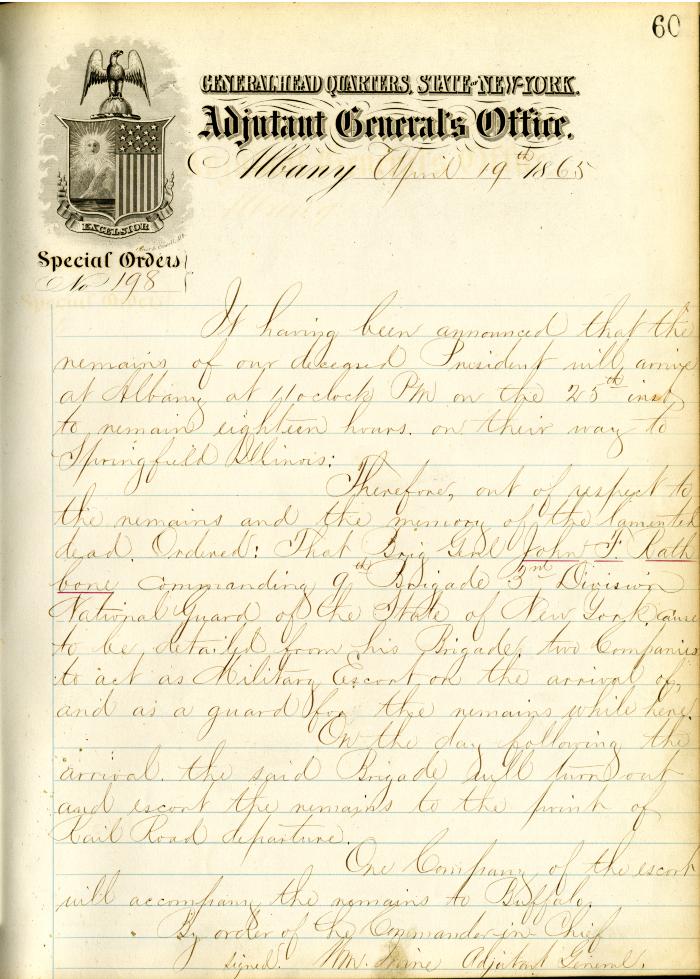 60
GENERAL HEAD QUARTERS, STATE OF NEW-YORK.
Adjutant General's Office.
Albany April 19th 1865
EXCELSIOR
Special Orders
No 198
It having been announced that the
remains of our deceased President will arrive
at Albany at 11 oclock PM on the 25th inst
to remain eighteen hours. on their way to
Springfield Illinois:
Therefore, out of respect to
the remains and the memory of the lamented
dead. Ordered: That Brig Genl John F. Rath
bone commanding 9th Brigade 3rd Division
National Guard of the State of New York cause
to be detailed from his Brigade, two Companies
to act as Military Escort on the arrival of,
and as a guard for the remains while here.
On the day following the
arrival. the said Brigade will turn out
and escort the remains to the point of
Rail Road departure.
One Company of the escort
will accompany the remains to Buffalo.
By order of the Commander in Chief
signed. Wm. Irvine Adjutant General.